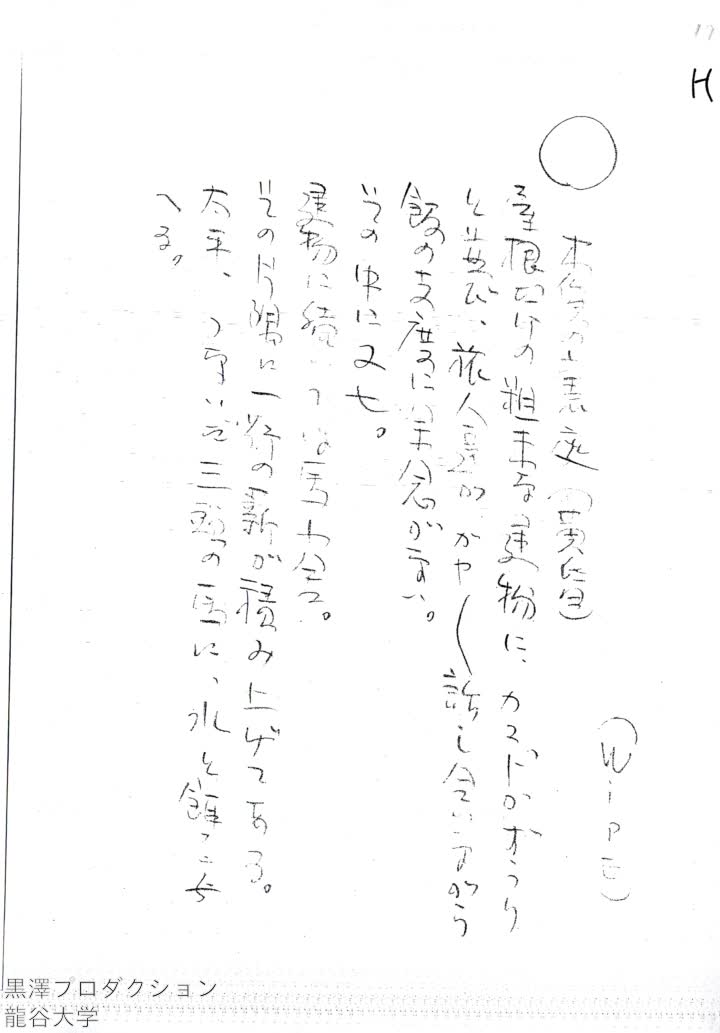 17
H
(WIPE)
○ 木賃の裏庭(黄昏)
屋根だけの粗末な建物に、カマドがずらり
と並び、旅人達がガヤ〱話し合いながら
飯の支度に余念がない。
その中に又七。
建物に続いては馬小舎。
その片隅に一行の薪が積み上げてある。
太平、つないだ三頭の馬に、水と餌を与
へる。
黒澤プロダクション
龍谷大学